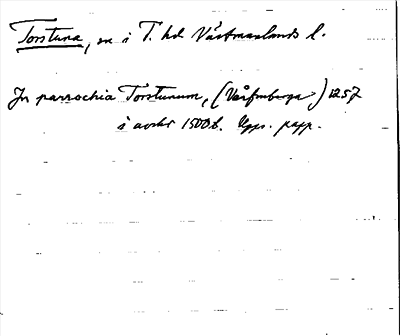 Torstuna, sn i T. hd Västmanlands l.
In parrochia Torstunum, (Vårfruberga) 1257
i avskr 1500t. Upps. papp.